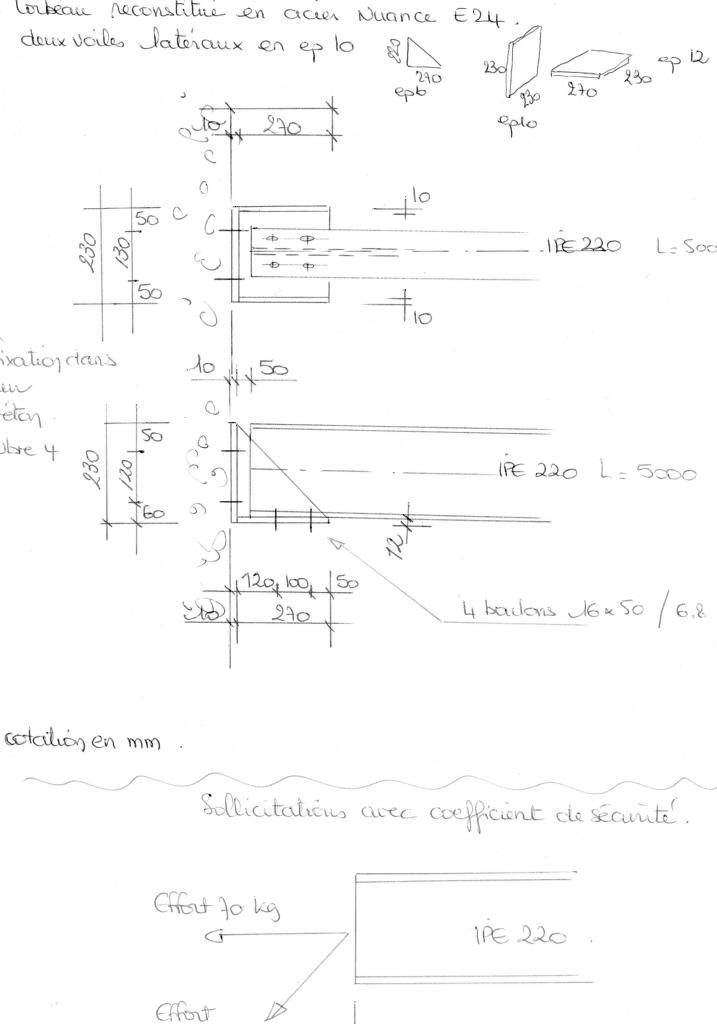 Corbeau reconstitué en acier Nuance E24.
deux voiles latéraux en ep 10
220
270
ep6
230
230
ep10
270
230
ep 12
10
270
10
230
130
50
50
IPE 220 L=500
10
ixation dans
béton
10
50
230
120
50
60
IPE 220 L=5000
12
120 100 50
270
4 boulons 16x50 / 6.8
cotation en mm.
Sollicitations avec coefficient de sécurité.
Effort 70 kg
IPE 220.
Effort